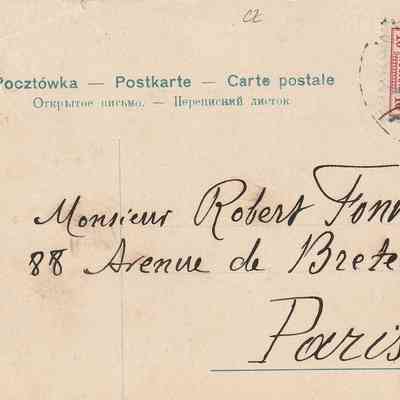 CZ
Pocztówka — Postkarte — Carte postale
Открытое письмо. — Переписний листок
Monsieur Robert
88 Avenue de Brete
Paris